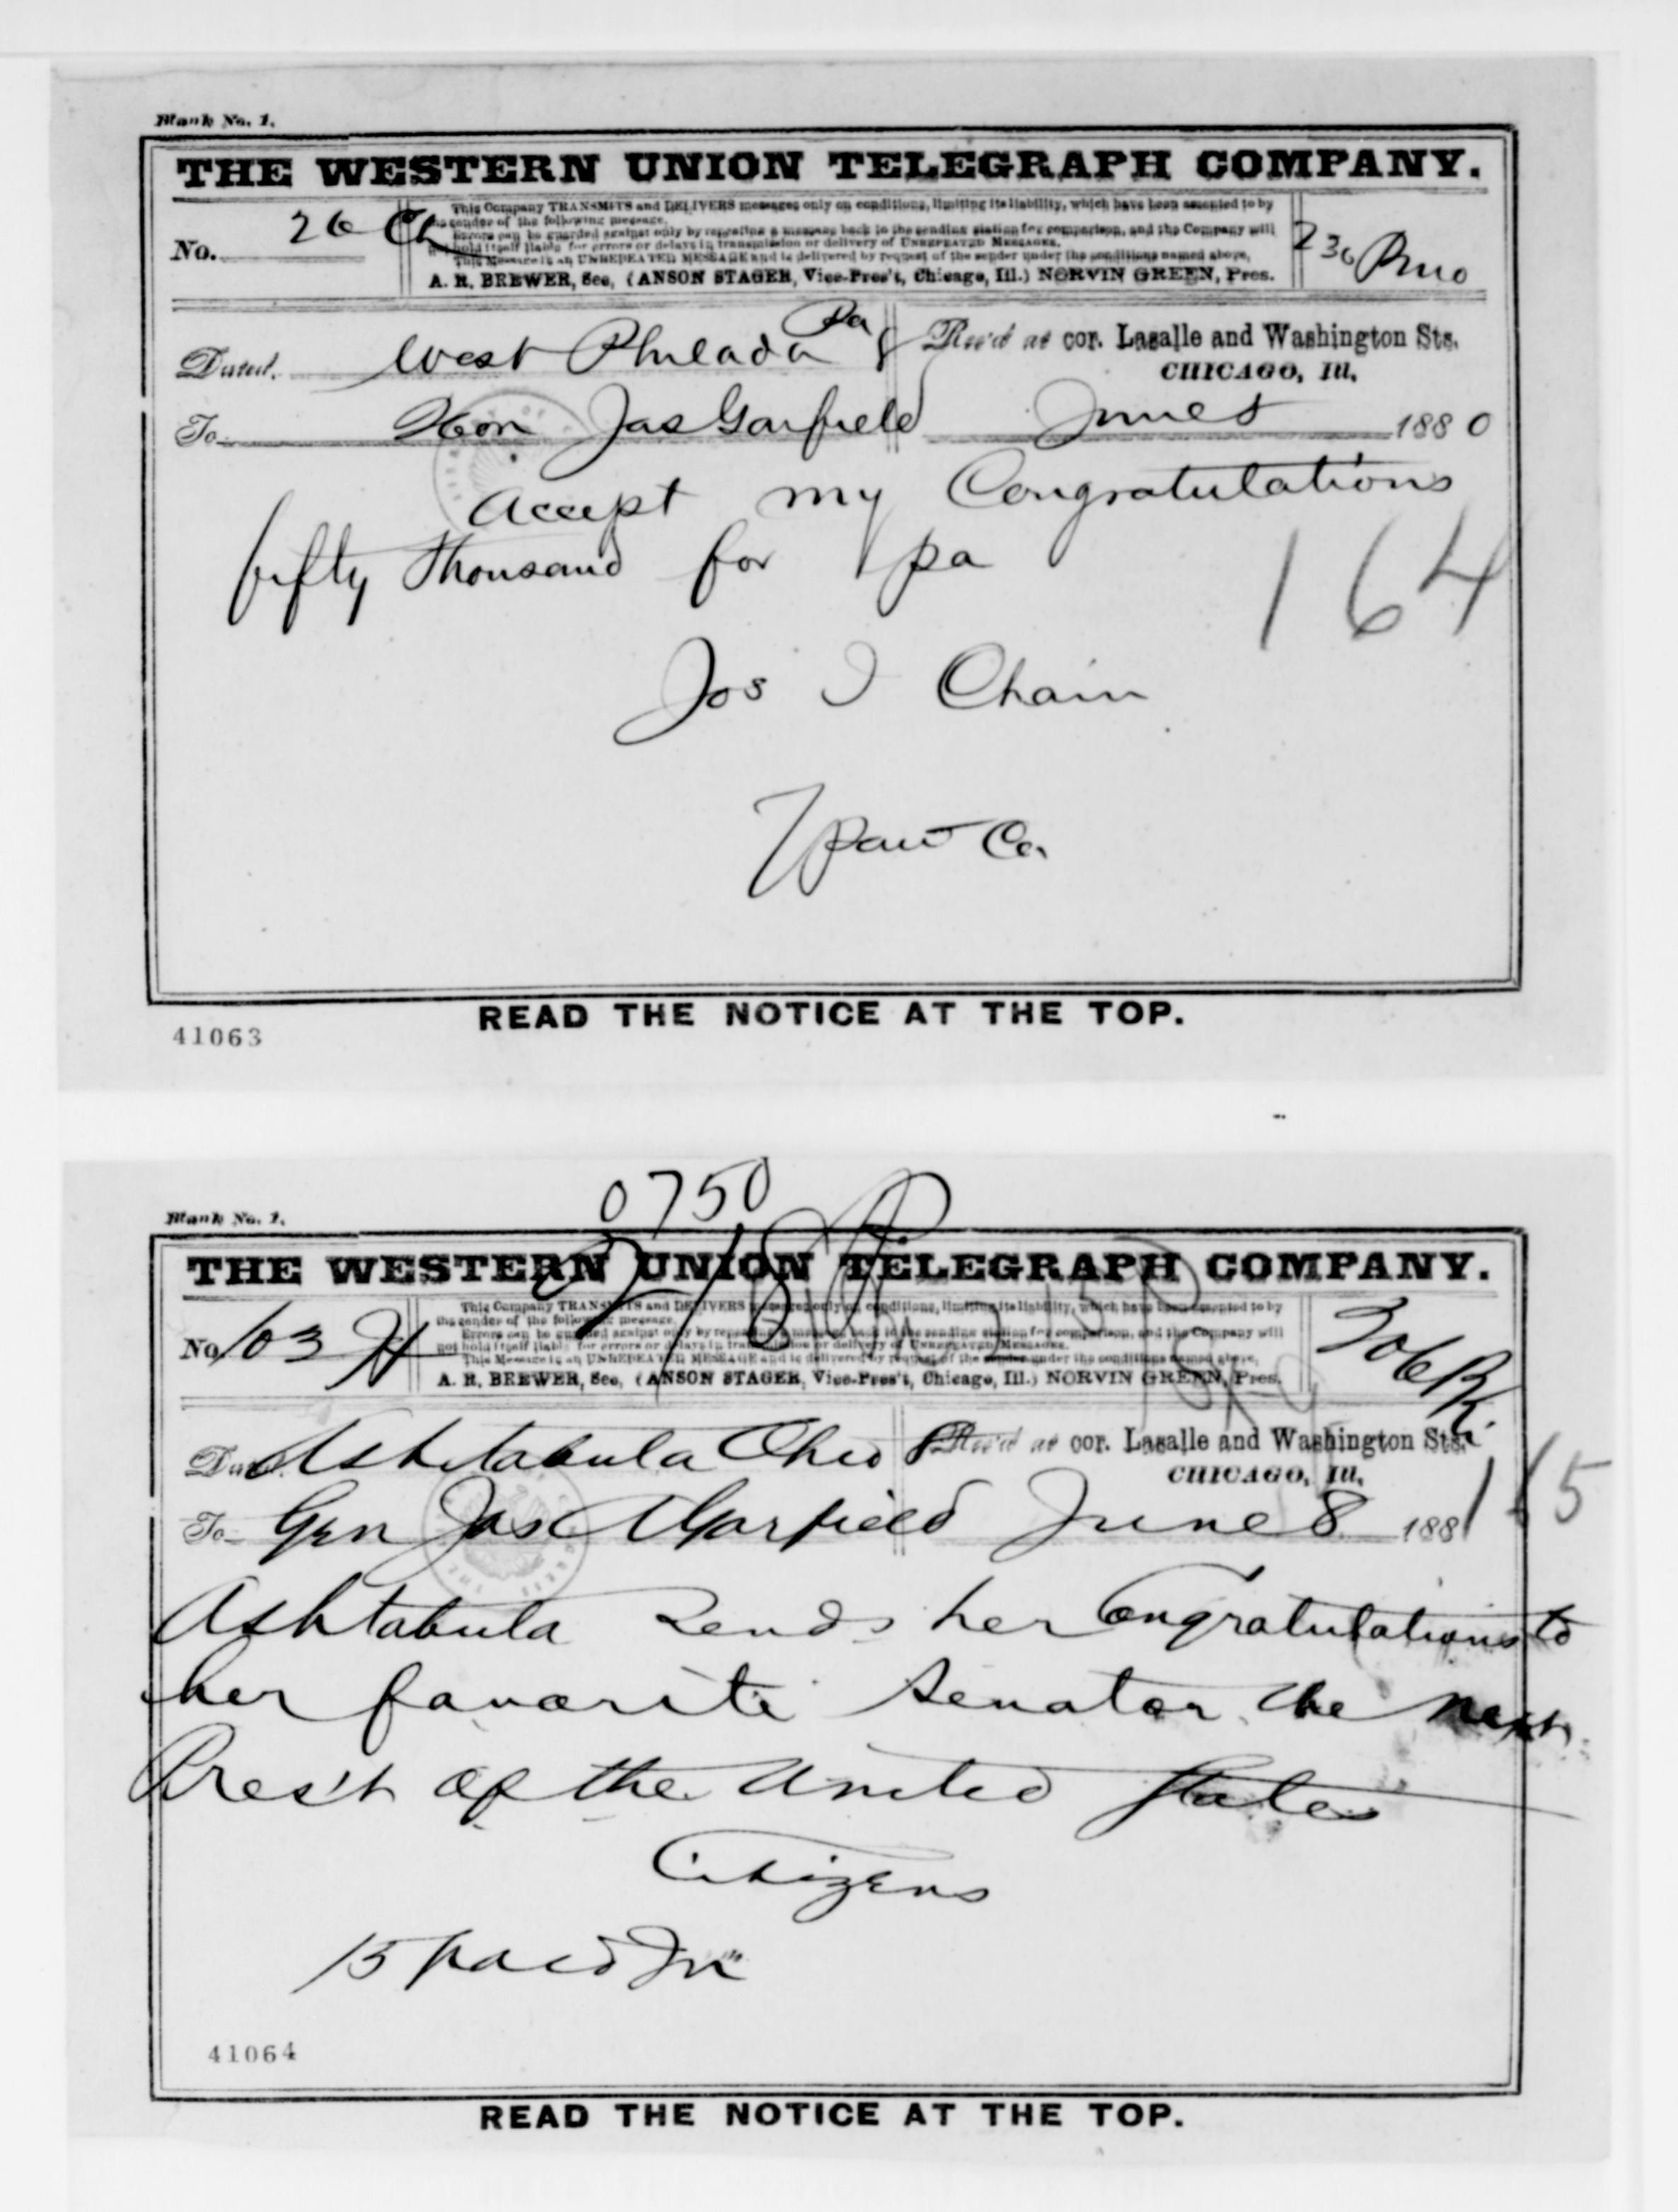 Blank No. 1.
THE WESTERN UNION TELEGRAPH COMPANY.
No. 26 Ch
This Company TRANSMITS and DELIVERS messages only on conditions, limiting its liability, which have been assented to by
the sender of the following message.
Errors can be guarded against only by repeating a message back to the sending station for comparison, and the Company will
not hold itself liable for errors or delays in transmission or delivery of UNREPEATED MESSAGES.
This Message is an UNREPEATED MESSAGE and is delivered by request of the sender under the conditions named above,
A. R. BREWER, Sec, (ANSON STAGER, Vice-Pres't, Chicago, Ill.) NORVIN GREEN, Pres.
230
Dated. West Philada Pa 8
Rec'd at cor. Lasalle and Washington Sts.
CHICAGO, Ill.
To Hon Jas Garfield June 8 1880
Accept my Congratulations
fifty thousand for pa
164
Jos I Chain
Co.
READ THE NOTICE AT THE TOP.
41063
0750
Blank No. 1.
THE WESTERN UNION TELEGRAPH COMPANY.
No 103 H
This Company TRANSMITS and DELIVERS messages only on conditions, limiting its liability, which have been assented to by
the sender of the following message.
Errors can be guarded against only by repeating a message back to the sending station for comparison, and the Company will
not hold itself liable for errors or delays in transmission or delivery of UNREPEATED MESSAGES.
This Message is an UNREPEATED MESSAGE and is delivered by request of the sender under the conditions named above,
A. R. BREWER, Sec, (ANSON STAGER, Vice-Pres't, Chicago, Ill.) NORVIN GREEN, Pres.
Dated. Ashtabula Ohio 8
Rec'd at cor. Lasalle and Washington Sts.
CHICAGO, Ill.
To Gen Jas A Garfield June 8 188
Ashtabula Sends her Congratulations to
her favorite Senator the next
Pres't of the United States
Citizens
15 paid
41064
READ THE NOTICE AT THE TOP.